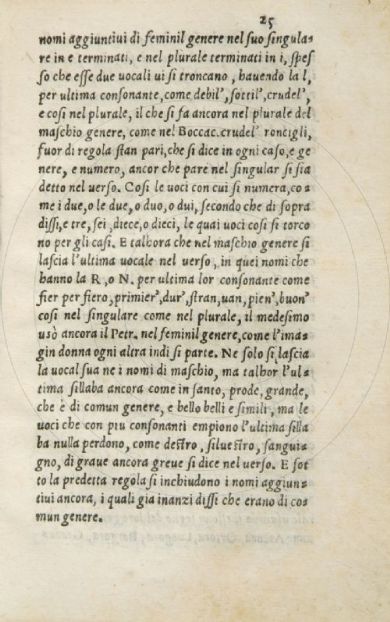 25
nomi aggiuntiui di feminil genere nel suo singula-
re in e terminati, e nel plurale terminati in i, spes
so che esse due uocali ui si troncano, hauendo la l,
per ultima consonante, come debil', sottil', crudel',
e cosi nel plurale, il che si fa ancora nel plurale del
maschio genere, come nel Boccac. crudel' roncigli,
fuor di regola stan pari, che si dice in ogni caso, e ge
nere, e numero, ancor che pare nel singular si sia
detto nel uerso. Cosi le uoci con cui si numera, co-
me i due, o le due, o duo, o dui, secondo che di sopra
dissi, e tre, sei, diece, o dieci, le quai uoci cosi si torco
no per gli casi. E talhora che nel maschio genere si
lascia l'ultima uocale nel uerso, in quei nomi che
hanno la R, o N. per ultima lor consonante come
fier per fiero, primier', dur', stran, uan, pien', buon'
cosi nel singulare come nel plurale, il medesimo
usò ancora il Petr. nel feminil genere, come l'ima-
gin donna ogni altra indi si parte. Ne solo si lascia
la uocal sua ne i nomi di maschio, ma talhor l'ul-
tima sillaba ancora come in santo, prode, grande,
che è di comun genere, e bello belli e simili, ma le
uoci che con piu consonanti empiono l'ultima silla
ba nulla perdono, come destro, siluestro, sangui-
gno, di graue ancora greue si dice nel uerso. E sot
to la predetta regola si inchiudono i nomi aggiun-
tiui ancora, i quali gia inanzi dissi che erano di co-
mun genere.